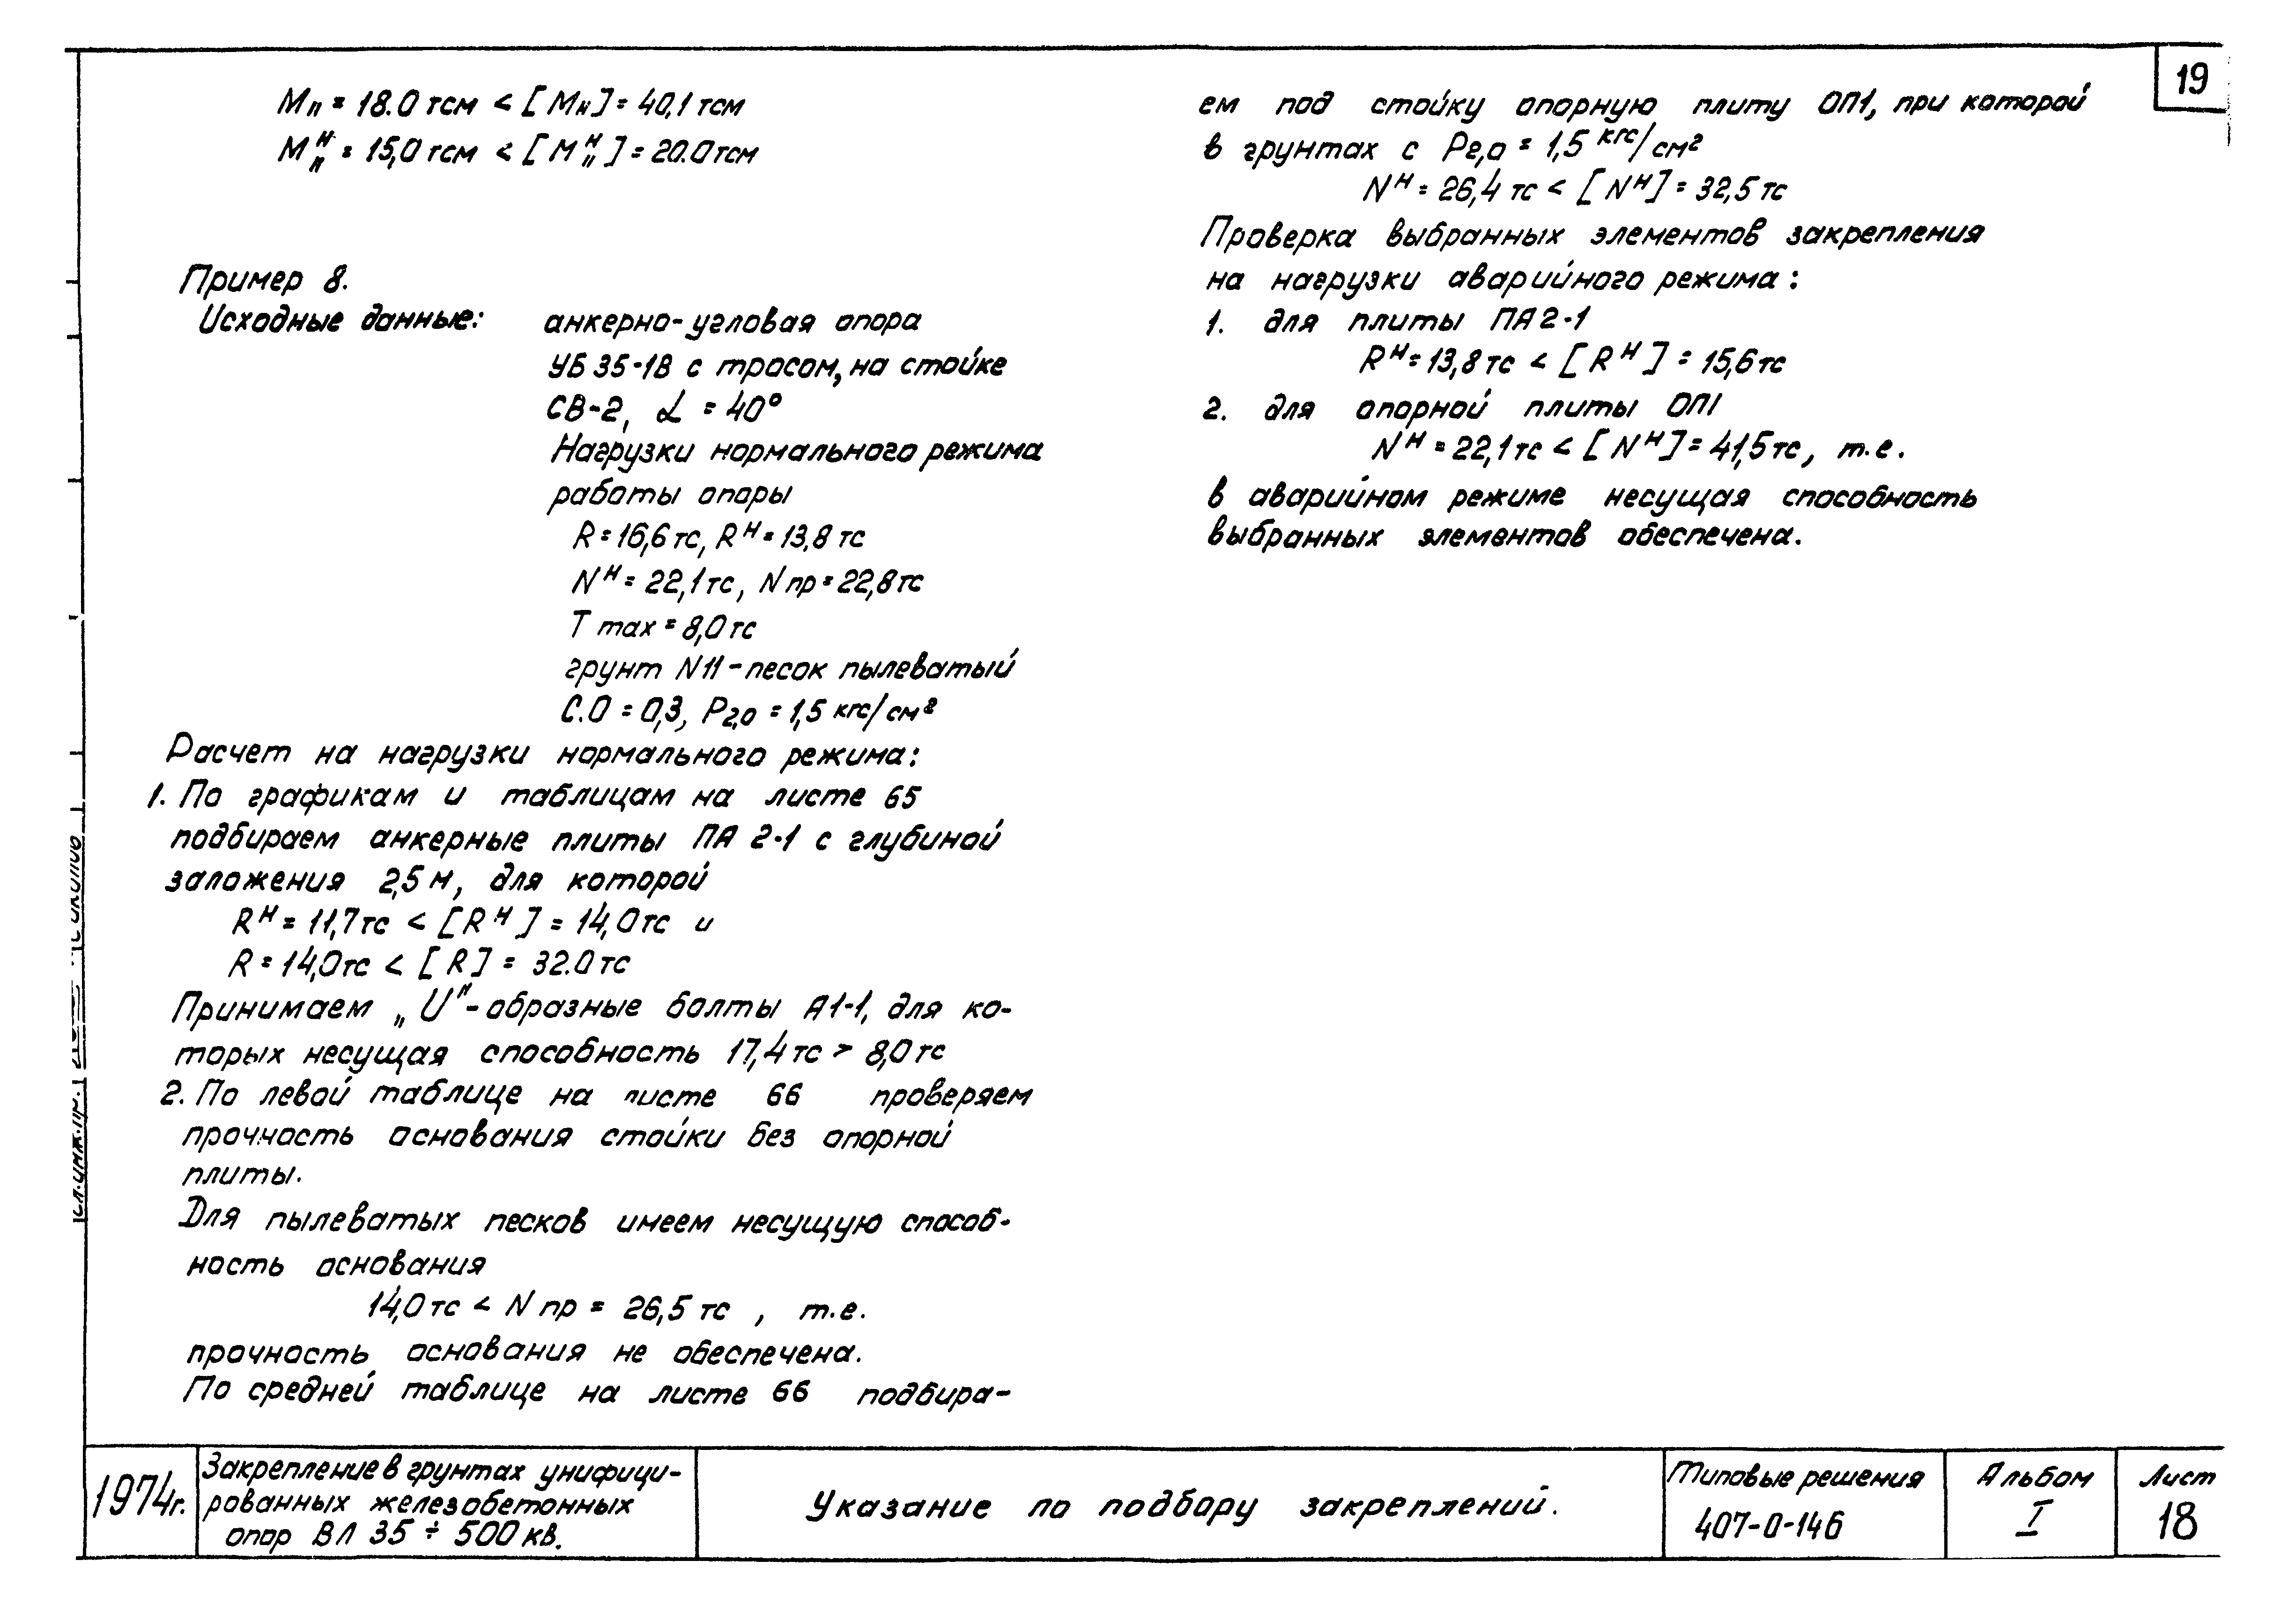 19
Мп = 18.0 тсм < [Мн] = 40,1 тсм
Мⁿп = 15,0 тсм < [Мⁿп] = 20.0 тсм
Пример 8.
Исходные данные: анкерно-угловая опора
УБ 35-1В с тросом, на стойке
СВ-2, α = 40°
Нагрузки нормального режима
работы опоры
R = 16,6 тс, Rᴴ = 13,8 тс
Nᴴ = 22,1 тс, N пр = 22,8 тс
T max = 8,0 тс
грунт N11 - песок пылеватый
С.О = 0,3, Р2,0 = 1,5 кгс/см²
Расчет на нагрузки нормального режима:
1. По графикам и таблицам на листе 65
подбираем анкерные плиты ПА 2-1 с глубиной
заложения 2,5 м, для которой
Rᴴ = 11,7 тс < [Rᴴ] = 14,0 тс и
R = 14,0 тс < [R] = 32.0 тс
Принимаем „U"-образные болты А1-1, для ко-
торых несущая способность 17,4 тс > 8,0 тс
2. По левой таблице на листе 66 проверяем
прочность основания стойки без опорной
плиты.
Для пылеватых песков имеем несущую способ-
ность основания
14,0 тс < N пр = 26,5 тс , т.е.
прочность основания не обеспечена.
По средней таблице на листе 66 подбира-
ем под стойку опорную плиту ОП1, при которой
в грунтах с Р2,0 = 1,5 кгс/см²
Nᴴ = 26,4 тс < [Nᴴ] = 32,5 тс
Проверка выбранных элементов закрепления
на нагрузки аварийного режима:
1. для плиты ПА 2-1
Rᴴ = 13,8 тс < [Rᴴ] = 15,6 тс
2. для опорной плиты ОП1
Nᴴ = 22,1 тс < [Nᴴ] = 41,5 тс, т.е.
в аварийном режиме несущая способность
выбранных элементов обеспечена.
1974г.
Закрепление в грунтах унифици-
рованных железобетонных
опор ВЛ 35 ÷ 500 кв.
Указание по подбору закреплений.
Типовые решения
407-0-146
Альбом
I
Лист
18